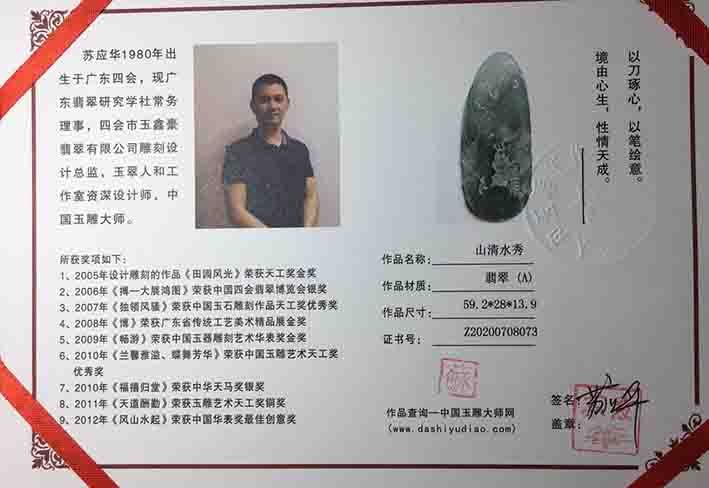 苏应华1980年出
生于广东四会，现广
东翡翠研究学社常务
理事，四会市玉鑫豪
翡翠有限公司雕刻设
计总监、玉翠人和工
作室资深设计师，中
国玉雕大师。
以刀琢心，以笔绘意。
境由心生，性情天成。
所获奖项如下：
1、2005年设计雕刻的作品《田园风光》荣获天工奖金奖
2、2006年《搏一大展鸿图》荣获中国四会翡翠博览会银奖
3、2007年《独领风骚》荣获中国玉石雕刻作品天工奖优秀奖
4、2008年《博》荣获广东省传统工艺美术精品展金奖
5、2009年《畅游》荣获中国玉器雕刻艺术华表奖金奖
6、2010年《兰馨雅溢、蝶舞芳华》荣获中国玉雕艺术天工奖
优秀奖
7、2010年《福禧归堂》荣获中华天马奖银奖
8、2011年《天道酬勤》荣获玉雕艺术天工奖铜奖
9、2012年《风山水起》荣获中国华表奖最佳创意奖
作品名称：山清水秀
作品材质：翡翠 (A)
作品尺寸：59.2*28*13.9
证书号：Z20200708073
作品查询一中国玉雕大师网
(www.dashiyudiao.com)
签名：
盖章：